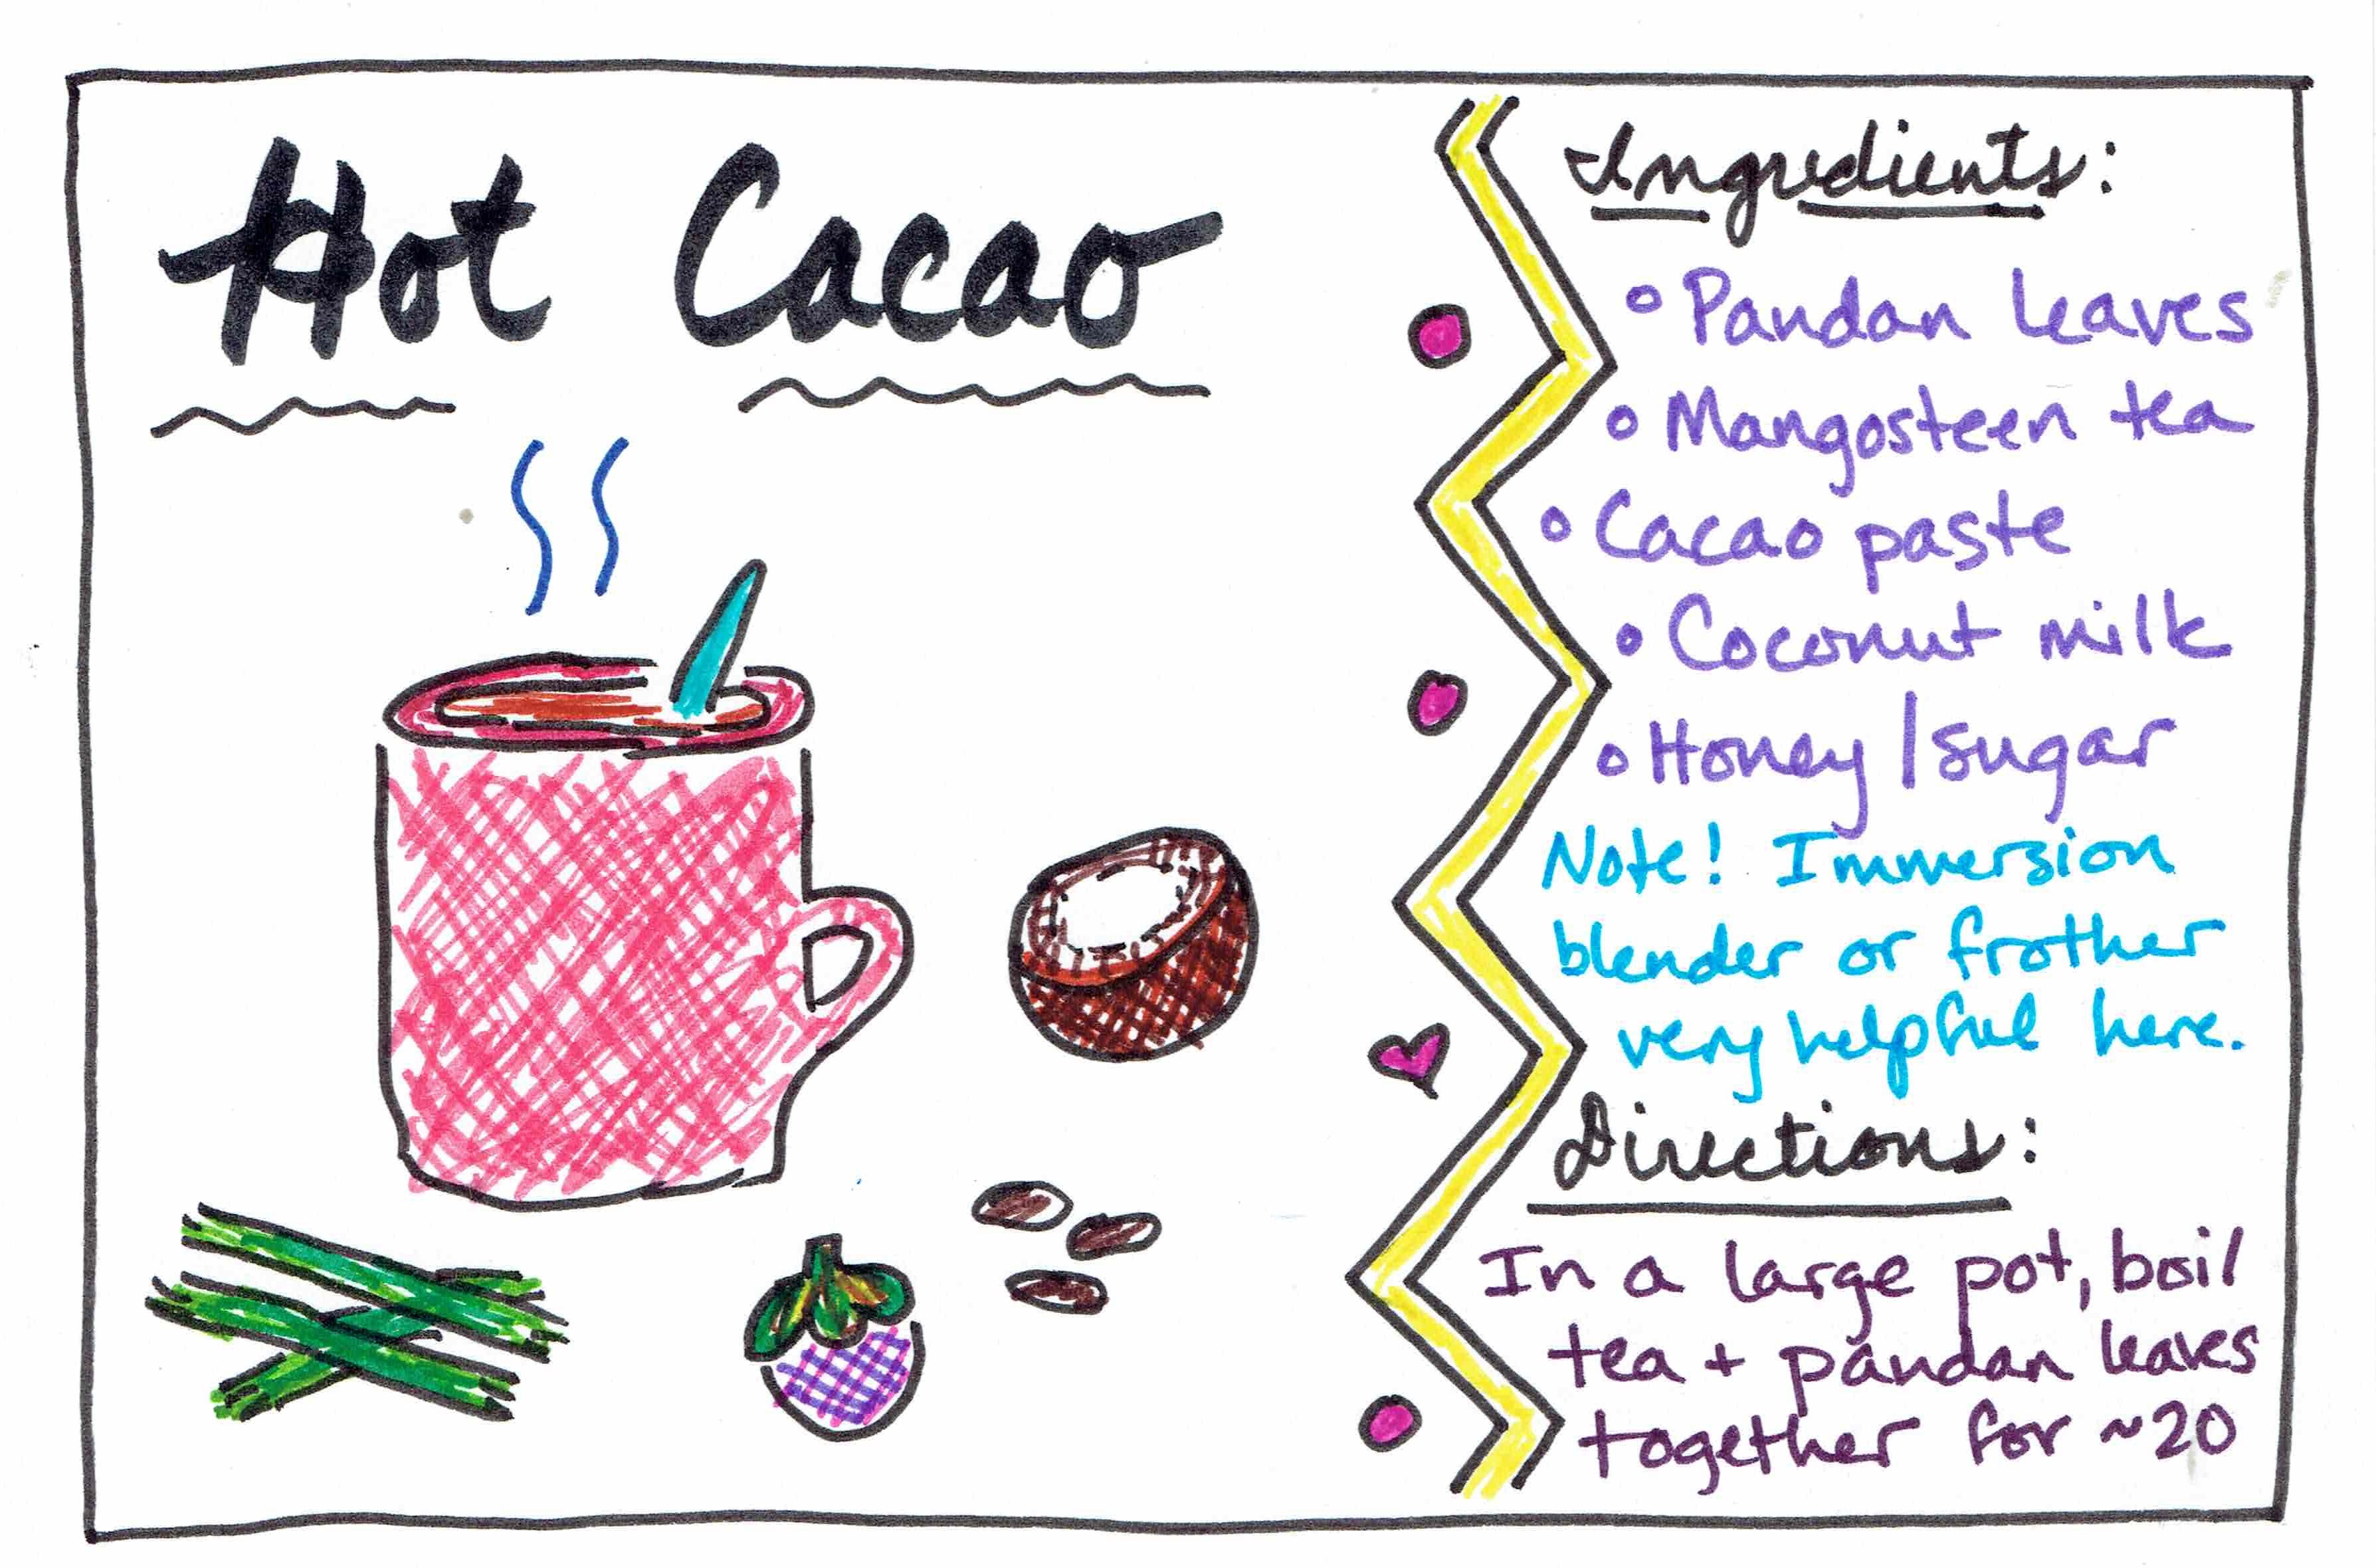 Hot Cacao
Ingredients:
◦ Pandan leaves
◦ Mangosteen tea
◦ Cacao paste
◦ Coconut milk
◦ Honey/sugar
Note! Immersion
blender or frother
very helpful here.
Directions:
In a large pot, boil
tea + pandan leaves
together for ~20